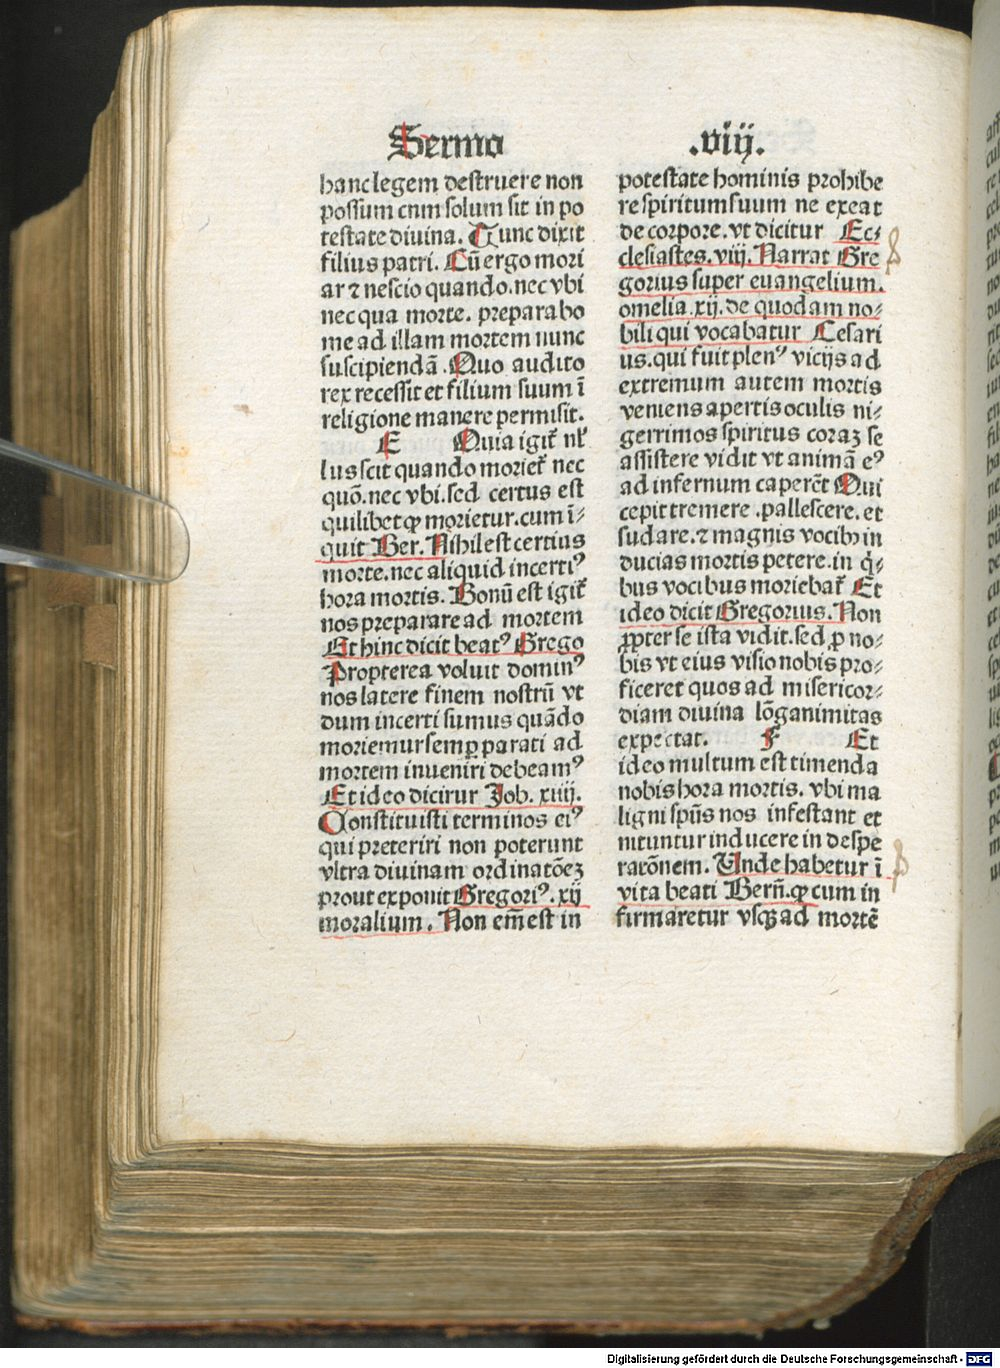 Sermo .viij.
hanc legem destruere non
possum cnm solum sit in po
testate diuina. Tunc dixit
filius patri. Cū ergo mori
ar ⁊ nescio quando. nec vbi
nec qua morte. preparabo
me ad illam mortem nunc
suscipiendā. Quo audito
rex recessit et filium suum ī
religione manere permisit.
E Quia igit᷑ nl᷑
lus scit quando moriet᷑ nec
quō. nec vbi. sed certus est
quilibet ꝙ morietur. cum ī-
quit Ber. Nihil est certius
morte. nec aliquid incertiꝰ
hora mortis. Bonū est igit᷑
nos preparare ad mortem
Et hinc dicit beatꝰ Grego
Propterea voluit dominꝰ
nos latere finem nostrū vt
dum incerti sumus quādo
moriemur semꝑ parati ad
mortem inueniri debeamꝰ
Et ideo dicirur Job. xiiij.
Constituisti terminos eiꝰ
qui preteriri non poterunt
vltra diuinam ordinatōeꝫ
prout exponit Gregoriꝰ. xij
moralium. Non em̄ est in
potestate hominis prohibe
re spiritum suum ne exeat
de corpore. vt dicitur Ec-
clesiastes. viij. Narrat Gre
gorius super euangelium.
omelia. xij. de quodam no-
bili qui vocabatur Cesari
us. qui fuit plenꝰ vicijs ad
extremum autem mortis
veniens apertis oculis ni-
gerrimos spiritus coraꝫ se
assistere vidit vt animā eꝰ
ad infernum caperēt Qui
cepit tremere. pallescere. et
sudare. ⁊ magnis vocibꝰ in
ducias mortis petere. in q̇-
bus vocibus moriebat᷑ Et
ideo dicit Gregorius. Non
ꝓpter se ista vidit. sed ꝓ no-
bis vt eius visio nobis pro-
ficeret quos ad misericor-
diam diuina lōganimitas
expectat. F Et
ideo multum est timenda
nobis hora mortis. vbi ma
ligni spūs nos infestant et
nituntur inducere in despe
ratōnem. Unde habetur ī
vita beati Berñ. ꝙ cum in
firmaretur vsqꝫ ad mortē
Digitalisierung gefördert durch die Deutsche Forschungsgemeinschaft - DFG